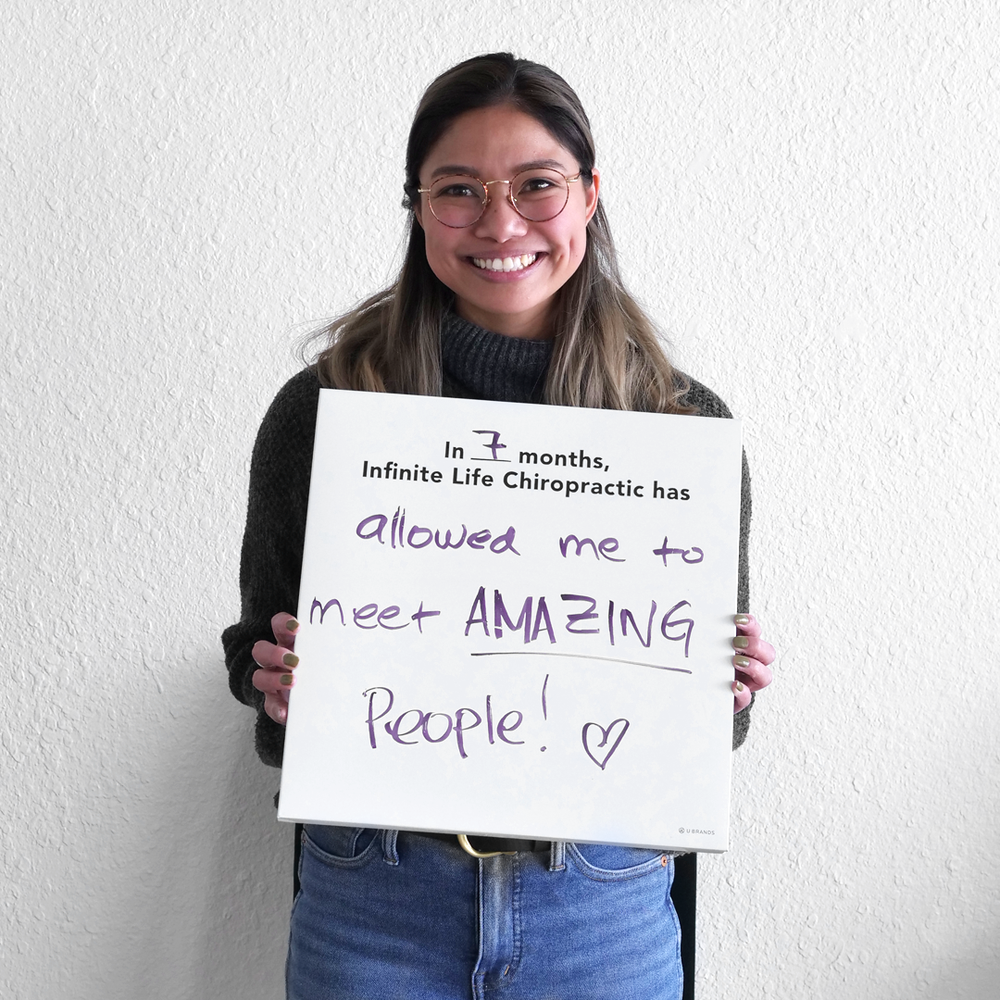 In 7 months,
Infinite Life Chiropractic has
allowed me to
meet AMAZING
People! ♡
U BRANDS